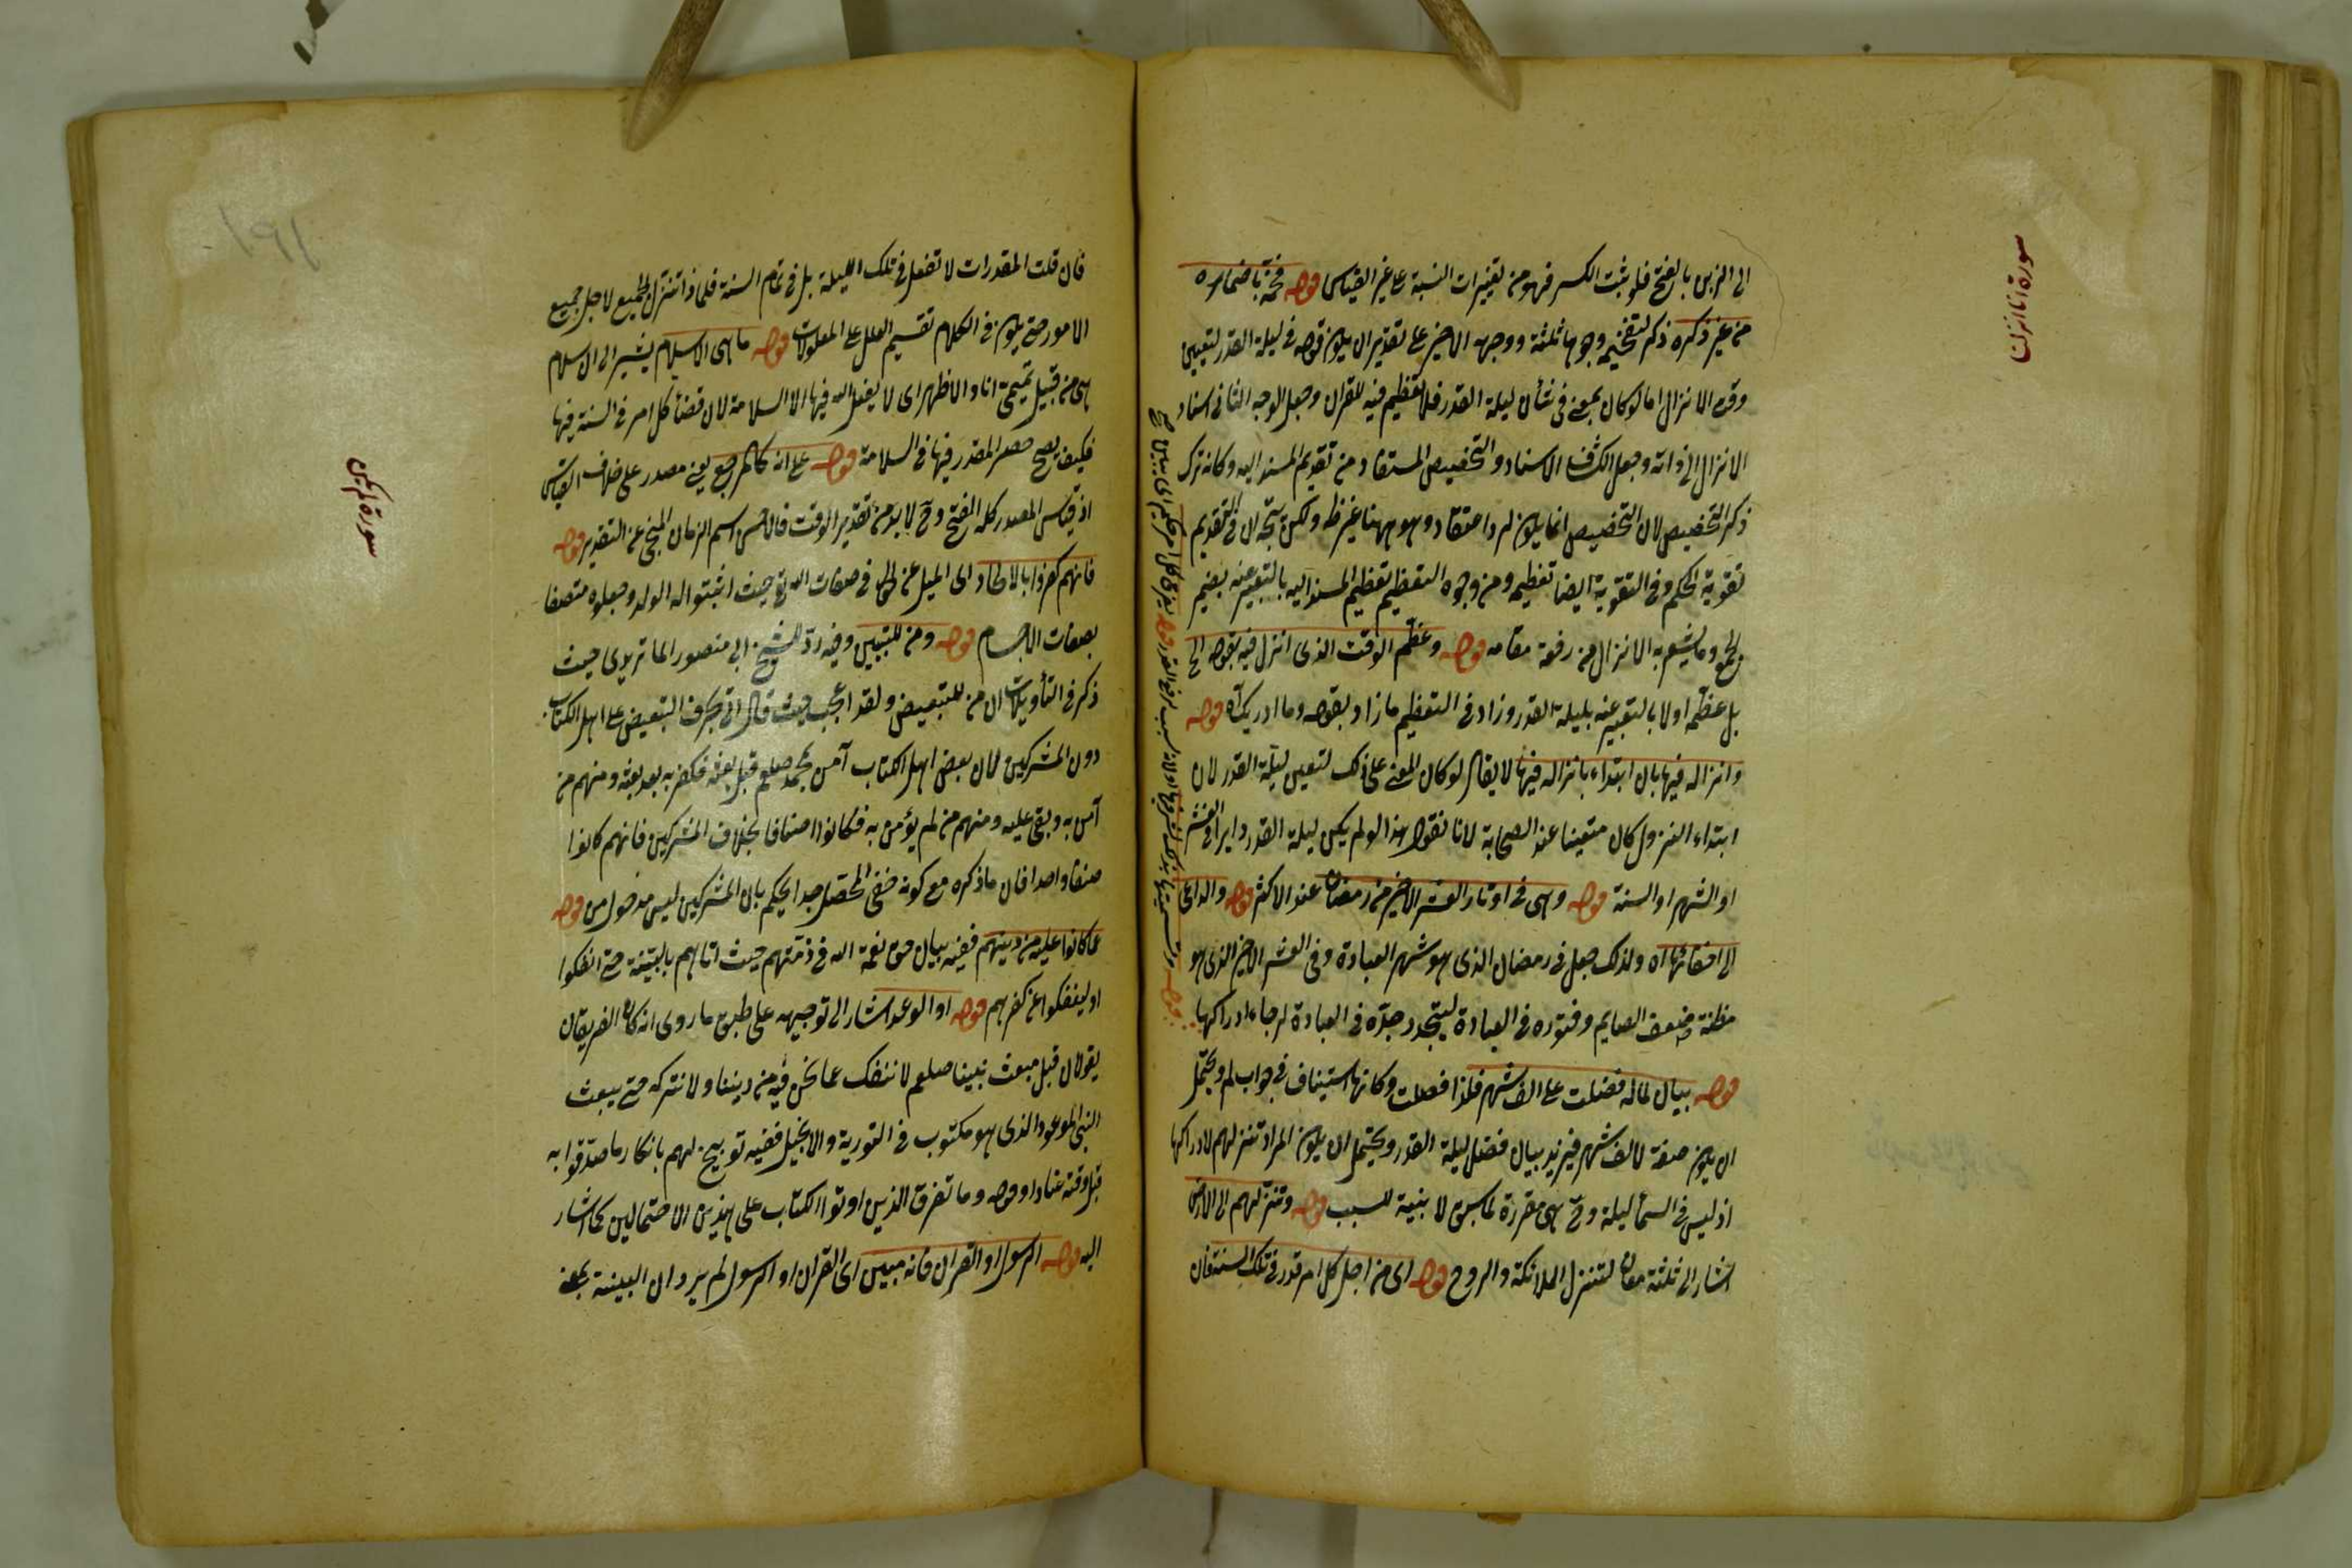 سورة انا انزلنا
الى الزبن بالفتح فلو ثبت الكسر فهو من تغييرات النسبة على غير القياس قوله فخمه باضماره
من غير ذكره ذكر لتفخيمه وجوها ثلثة ووجه الاخير على تقدير ان يكون قوله في ليلة القدر لتعيين
وقت الانزال اما لو كان بمعنى في شأن ليلة القدر فلا تعظيم فيه للقران وجعل الوجه الثاني اسناد
الانزال الى ذاته وجعل الكشاف الاسناد والتخصيص المستفاد من تقديم المسند اليه وكانه ترك
ذكر التخصيص لان التخصيص انما يكون لرد اعتقاد وهو ههنا غير ظ ولكن يتجه ان في التقديم
تقوية الحكم وفي التقوية ايضا تعظيم ومن وجوه التعظيم تعظيم المسند اليه بالتعبير عنه بضمير
الجمع وما يشعر به الانزال من رفعة مقامه قوله وعظم الوقت الذى انزل فيه بقوله الخ
بل عظمه اولا بالتعبير عنه بليلة القدر وزاد في التعظيم ما زاد بقوله وما ادريك آه قوله
وانزاله فيها بان ابتداء بانزاله فيها لا يقال لو كان المعنى على ذلك لتعين ليلة القدر لان
ابتداء النزول كان متعينا عند الصحابة لانا نقول هذا لو لم يكن ليلة القدر دايرا في العشر
او الشهر او السنة قوله وهى في اوتار العشر الاخير من رمضان عند الاكثر قوله والداعى
الى اخفائها آه ولذلك جعل في رمضان الذى هو شهر العبادة وفى العشر الاخير الذى هو
مظنة ضعف الصايم وفتوره فى العبادة ليتجدد جدّه فى العبادة لرجاء ادراكها
قوله بيان لماله فضلت على الف شهر فلذا فصلت وكانها استيناف في جواب لم ويحتمل
ان يكون صفة لالف شهر فيزيد بيان فضل ليلة القدر ويحتمل ان يكون المراد تنزلهم لادراكها
اذ ليس في السماء ليلة وح هى مقررة لما سبق لا بنية للسبب قوله وتنزلهم الى الارض
اشار الى ثلثة معان لتنزل الملائكة والروح قوله اى من اجل كل امر قدر في تلك السنة فان
فان قلت المقدرات لا تفعل في تلك الليلة بل في تمام السنة فلماذا تنزل الجميع لاجل جميع
الامور حتى يكون فى الكلام تقسيم العلل على المعلولات قوله ما هى الا سلام يشير الى ان سلام
هى من قبيل تميمى انا والاظهر اى لا يفعل الله فيها الا السلامة لان قضاء كل امر فى السنة فيها
فكيف يصح حصر المقدر فيها فى السلامة قوله على انه كالمرجع يعنى مصدر على خلاف القياس
اذ قياس المصدر كله الفتح وح لا بد من تقدير الوقت فالاحسن اسم الزمان المنجى عن التقدير قوله
فانهم كفروا بالالحاد اى الميل عن الحق فى صفات الله تع حيث اثبتوا له الولد وجعلوه متصفا
بصفات الاجسام قوله ومن للتبيين وفيه ردّ للشيخ ابى منصور الماتريدى حيث
ذكر فى التأويلات ان من للتبعيض ولقد اعجب حيث قال انى بحرف التبعيض على اهل الكتاب
دون المشركين لان بعض اهل الكتاب آمن بمحمد صلعم قبل بعثه فكفر به بعد بعثه ومنهم من
آمن به وبقى عليه ومنهم من لم يؤمن به فكانوا اصنافا بخلاف المشركين فانهم كانوا
صنفا واحدا فان ما ذكره مع كونه خفى المحصّل جدا يحكم بان المشركين ليس مدخول من قوله
عما كانوا عليه من دينهم ففيه بيان حق نعمة الله فى ذمتهم حيث اتاهم بالبيّنة حتى انفكوا
او لينفكوا عن كفرهم قوله او الوعد اشار الى توجيهه على طبق ما روى انه كان الفريقان
يقولان قبل مبعث نبينا صلعم لا ننفك عما نحن فيه من ديننا ولا نتركه حتى يبعث
النبى الموعود الذى هو مكتوب فى التورية والانجيل ففيه توبيخ لهم بانكار ما صدّقوا به
قبل وقته عنادا وقوله وما تفرق الذين اوتوا الكتاب على هذين الاحتمالين كما اشار
اليه قوله الرسول او القران فانه مبين اى القران او الرسول لم يرد ان البينة بمعنى
سورة لم يكن